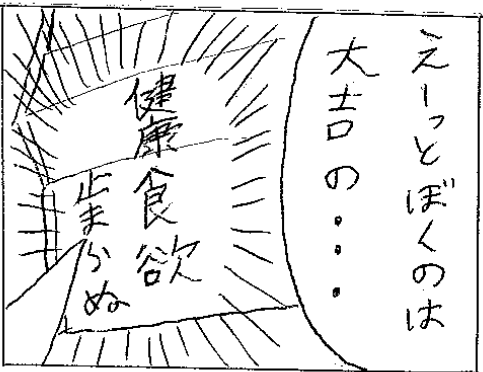 えーっとぼくのは
大吉の・・・
健康食欲
止まらぬ